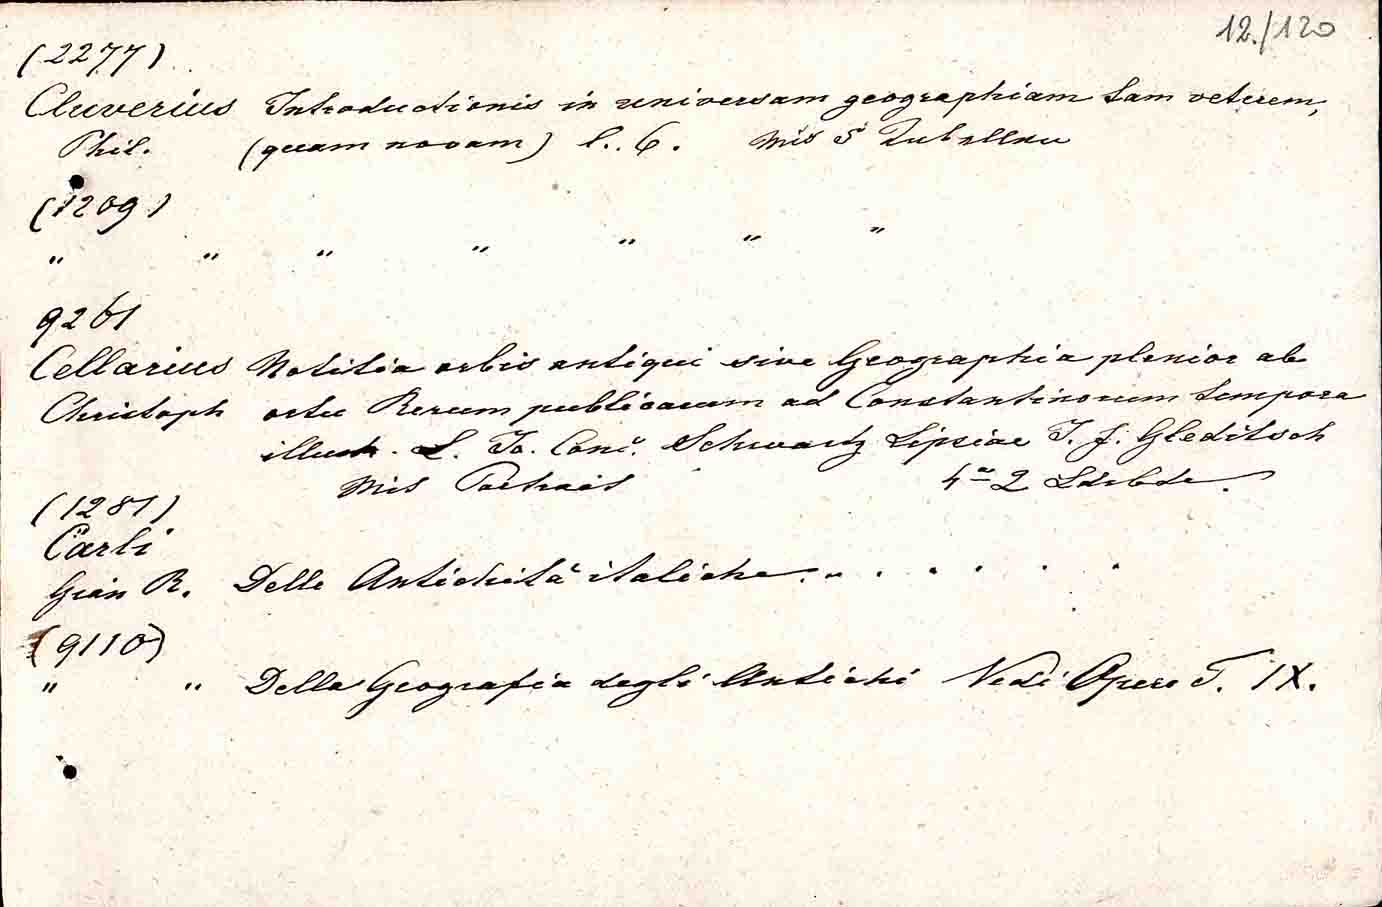 12./120
(2277)
Cluverius Introductionis in universam geographiam tam veterem,
Phil. (quam novam) l.. 6. mit 5 Tabellen
(1209)
" " " " " " "
9261
Cellarius Notitia orbis antiqui sive Geographia plenior ab
Christoph ortu Rerum publicarum ad Constantinorum tempora
illustr. L. Jo. Conr. Schwartz Lipsiae J. f. Gleditsch
mit Portrait 4° 2 Ldrbde.
(1281)
Carli
Gian R. Delle Antichità italiche . . . . . . .
(9110)
" " Della Geografia degli Antichi Vedi Opere T. IX.